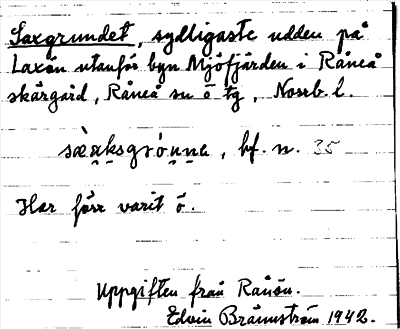 Saxgrundet, sydligaste udden på
Laxön utanför byn Mjöfjärden i Råneå
skärgård, Råneå sn ö tg, Norrb. l.
bf. n. 35
Har förr varit ö.
Uppgiften från Rånön.
Edvin Brännström 1942.